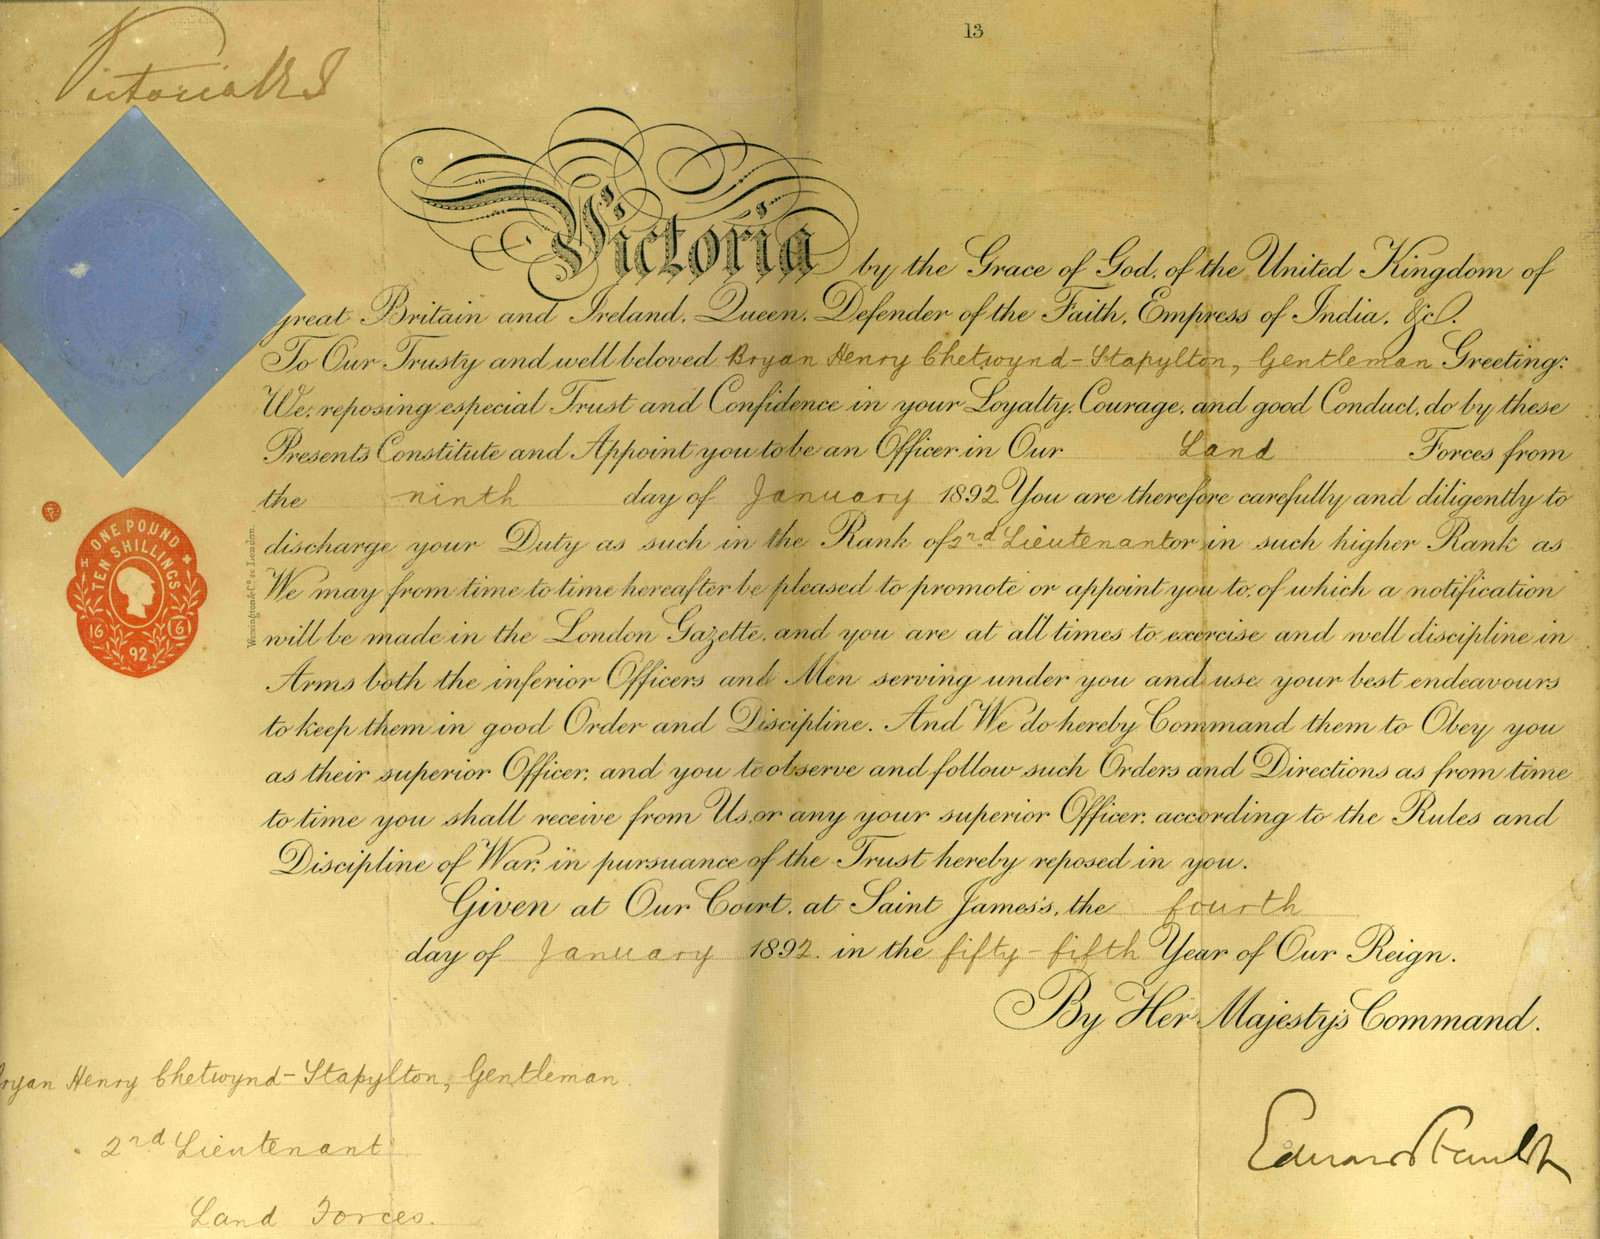 13
Victoria R I
Victoria by the Grace of God, of the United Kingdom of
Great Britain and Ireland, Queen, Defender of the Faith, Empress of India, &c.
To Our Trusty and well beloved Bryan Henry Chetwynd-Stapylton, Gentleman Greeting:
We, reposing especial Trust and Confidence in your Loyalty, Courage, and good Conduct, do by these
Presents Constitute and Appoint you to be an Officer in Our Land Forces from
the ninth day of January 1892. You are therefore carefully and diligently to
discharge your Duty as such in the Rank of 2nd Lieutenant or in such higher Rank as
We may from time to time hereafter be pleased to promote or appoint you to, of which a notification
will be made in the London Gazette, and you are at all times to exercise and well discipline in
Arms both the inferior Officers and Men serving under you and use your best endeavours
to keep them in good Order and Discipline. And We do hereby Command them to Obey you
as their superior Officer, and you to observe and follow such Orders and Directions as from time
to time you shall receive from Us, or any your superior Officer, according to the Rules and
Discipline of War, in pursuance of the Trust hereby reposed in you.
Given at Our Court, at Saint James's, the fourth
day of January 1892. in the fifty-fifth Year of Our Reign.
By Her Majesty's Command.
ONE POUND
TEN SHILLINGS
16 16
92
London.
Bryan Henry Chetwynd-Stapylton, Gentleman.
2nd Lieutenant
Land Forces.
Edward Stanhope